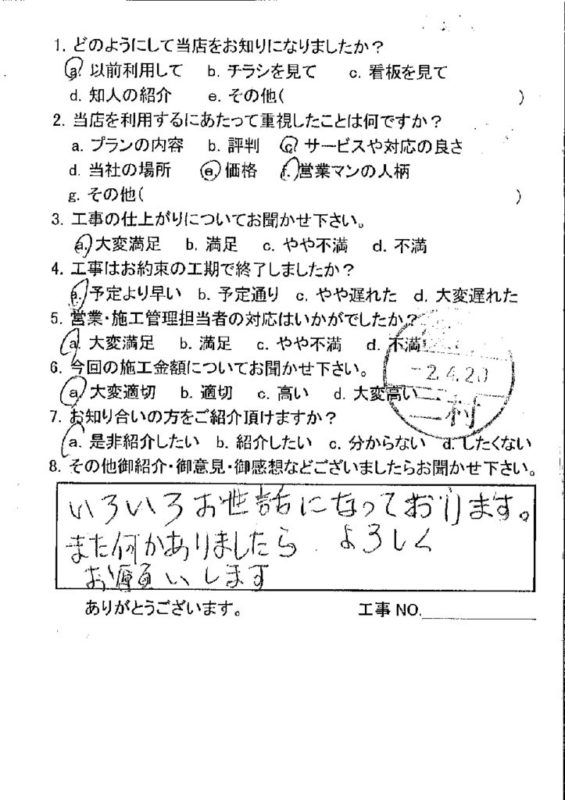 1. どのようにして当店をお知りになりましたか？
a. 以前利用して b. チラシを見て c. 看板を見て
d. 知人の紹介 e. その他( )
2. 当店を利用するにあたって重視したことは何ですか？
a. プランの内容 b. 評判 c. サービスや対応の良さ
d. 当社の場所 e. 価格 f. 営業マンの人柄
g. その他( )
3. 工事の仕上がりについてお聞かせ下さい。
a. 大変満足 b. 満足 c. やや不満 d. 不満
4. 工事はお約束の工期で終了しましたか？
a. 予定より早い b. 予定通り c. やや遅れた d. 大変遅れた
5. 営業・施工管理担当者の対応はいかがでしたか？
a. 大変満足 b. 満足 c. やや不満 d. 不満
6. 今回の施工金額についてお聞かせ下さい。
a. 大変適切 b. 適切 c. 高い d. 大変高い
-2.4.20
二村
7. お知り合いの方をご紹介頂けますか？
a. 是非紹介したい b. 紹介したい c. 分からない d. したくない
8. その他御紹介・御意見・御感想などございましたらお聞かせ下さい。
いろいろお世話になっております。
また何かありましたら よろしく
お願いします
ありがとうございます。 工事 NO.